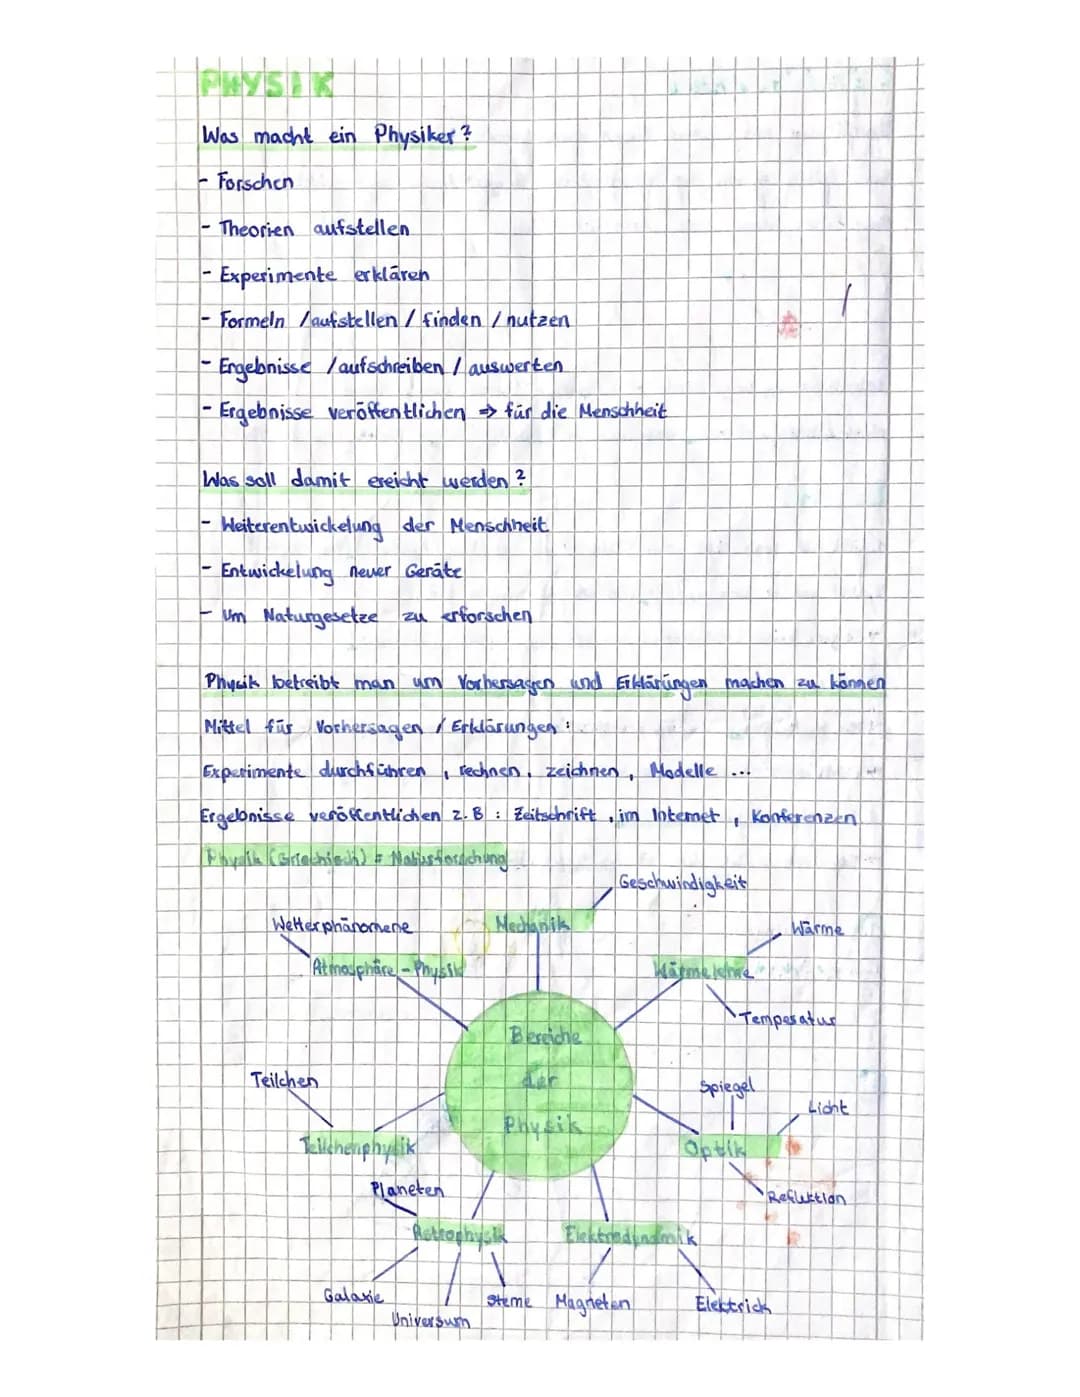 PHYSIK
Was macht ein Physiker?
- Forschen
- Theorien aufstellen
- Experimente erklären
- Formeln /aufstellen / finden / nutzen
- Ergebnisse /aufschreiben / auswerten
- Ergebnisse veröffentlichen => für die Menschheit
Was soll damit ereicht werden?
- Weiterentwickelung der Menschheit
- Entwickelung neuer Geräte
- Um Naturgesetze zu erforschen
Physik betreibt man um Vorhersagen und Erklärüngen machen zu können
Mittel für Vorhersagen / Erklärungen:
Experimente durchführen, rechnen, zeichnen, Modelle ...
Ergebnisse veröffentlichen z.B: Zeitschrift, im Internet, Konferenzen
Physik (Griechisch) = Naturforschung
Geschwindigkeit
Wetterphänomene
Mechanik
Wärme
Atmosphäre-Physik
Wärmelehre
Temperatur
Bereiche
der
Physik
Teilchen
Spiegel
Licht
Teilchenphysik
Optik
Planeten
Refluktion
Astrophysik
Elektrodynamik
Galaxie
Sterne
Magneten
Elektrick
Universum